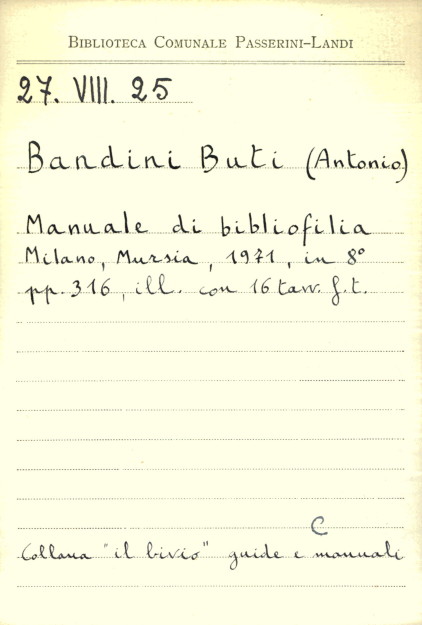 BIBLIOTECA COMUNALE PASSERINI-LANDI
27. VIII. 25
Bandini Buti (Antonio)
Manuale di bibliofilia
Milano, Mursia, 1971, in 8°
pp. 316, ill. con 16 tavv. f.t.
C
Collana "il bivio" guide e manuali